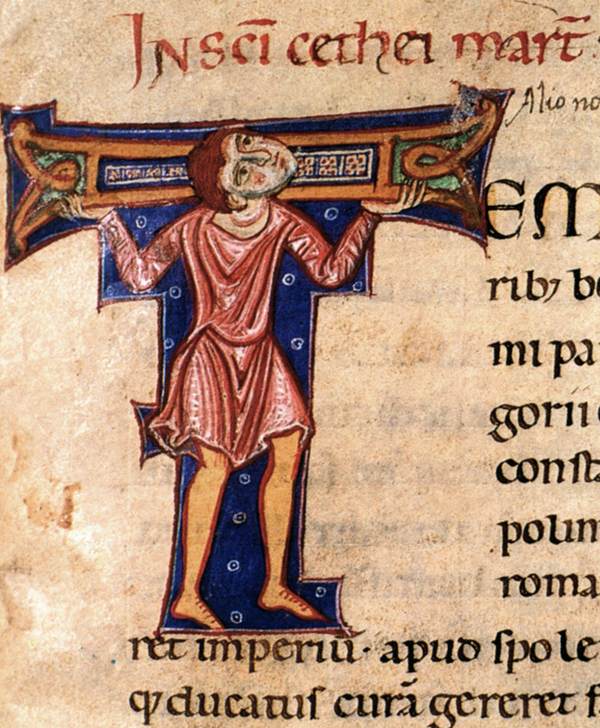 IN SCI cethei mart̄.
Alio no
TEM
ribꝫ b
mi pa
gorii
const
polim
roma
ret imperiū· apud spole
qꝫ ducatus curā gereret